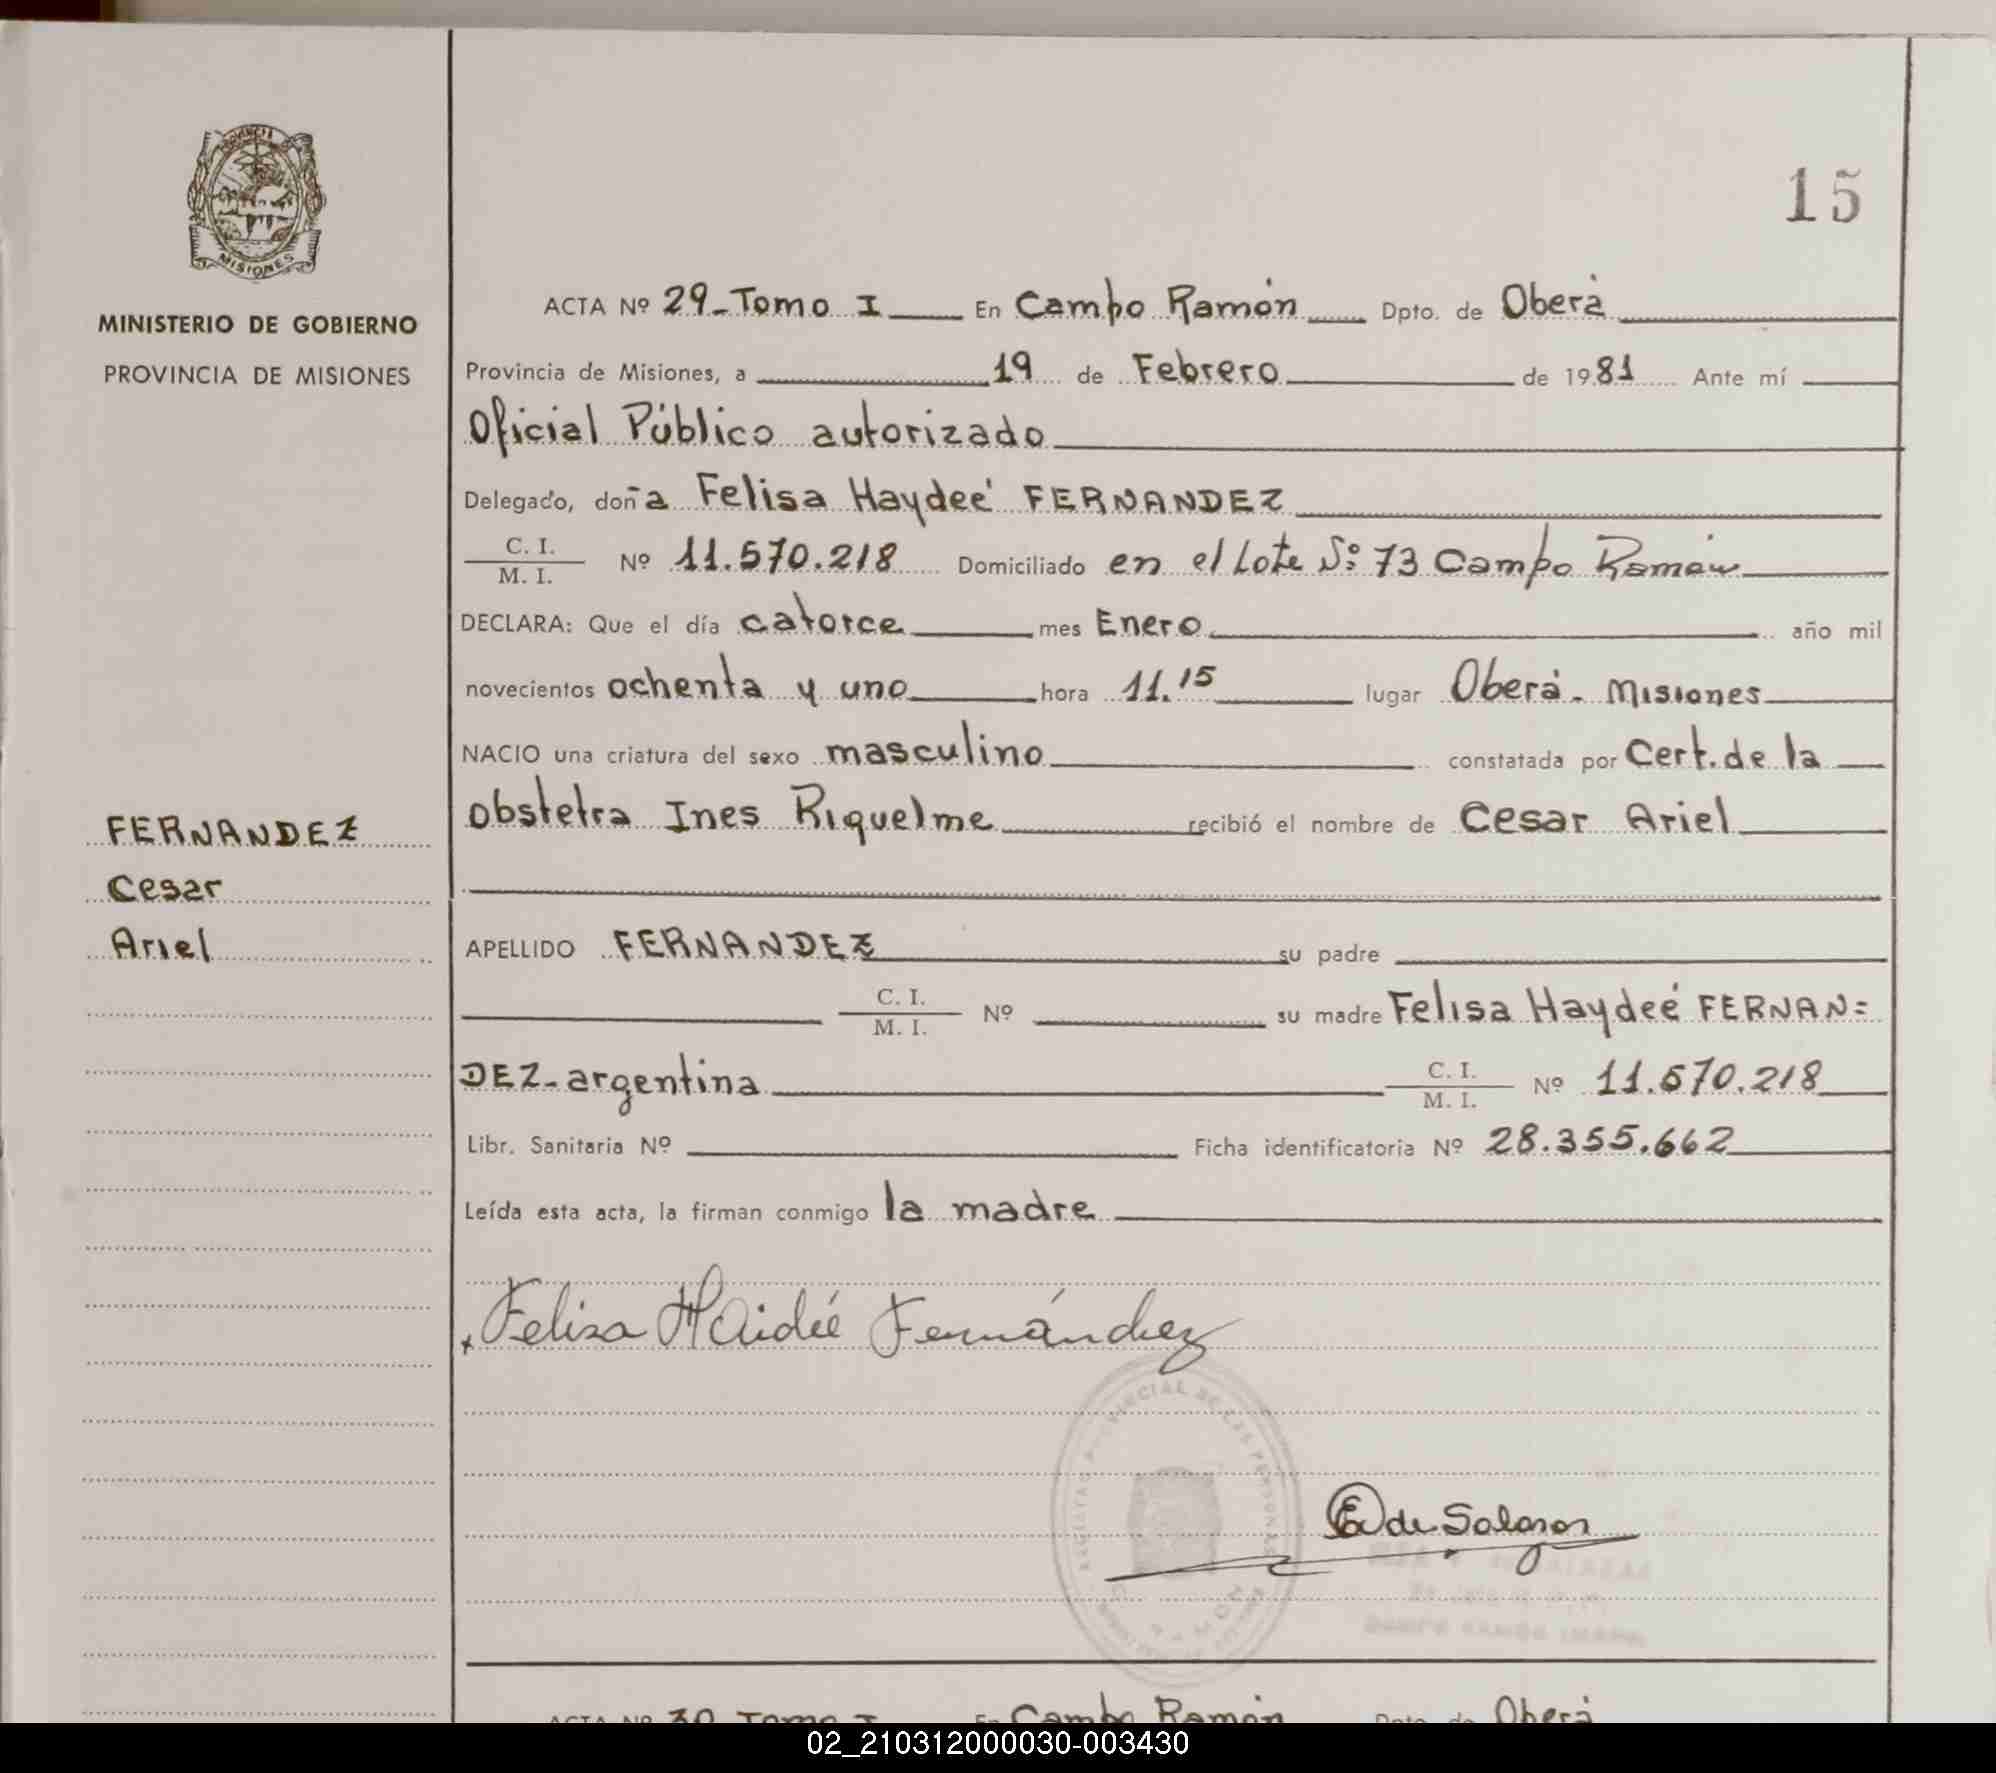 PROVINCIA
MISIONES
MINISTERIO DE GOBIERNO
PROVINCIA DE MISIONES
15
ACTA Nº 29-Tomo I En Campo Ramón Dpto. de Oberá
Provincia de Misiones, a 19 de Febrero de 1981 Ante mí
Oficial Público autorizado
Delegado, doña Felisa Haydeé FERNANDEZ
C. I.
M. I. Nº 11.570.218 Domiciliado en el Lote Nº 73 Campo Ramón
DECLARA: Que el día catorce mes Enero año mil
novecientos ochenta y uno hora 11.15 lugar Oberá - Misiones
NACIO una criatura del sexo masculino constatada por Cert. de la
Obstetra Ines Riquelme recibió el nombre de Cesar Ariel
FERNANDEZ
Cesar
Ariel
APELLIDO FERNANDEZ su padre
C. I.
M. I. Nº su madre Felisa Haydeé FERNAN=
DEZ-argentina C. I.
M. I. Nº 11.570.218
Libr. Sanitaria Nº Ficha identificatoria Nº 28.355.662
Leída esta acta, la firman conmigo la madre
Felisa Haideé Fernández
DE LAS PERSONAS
ACTA Nº 30 Tomo I En Campo Ramón Dpto. de Oberá
02_210312000030-003430